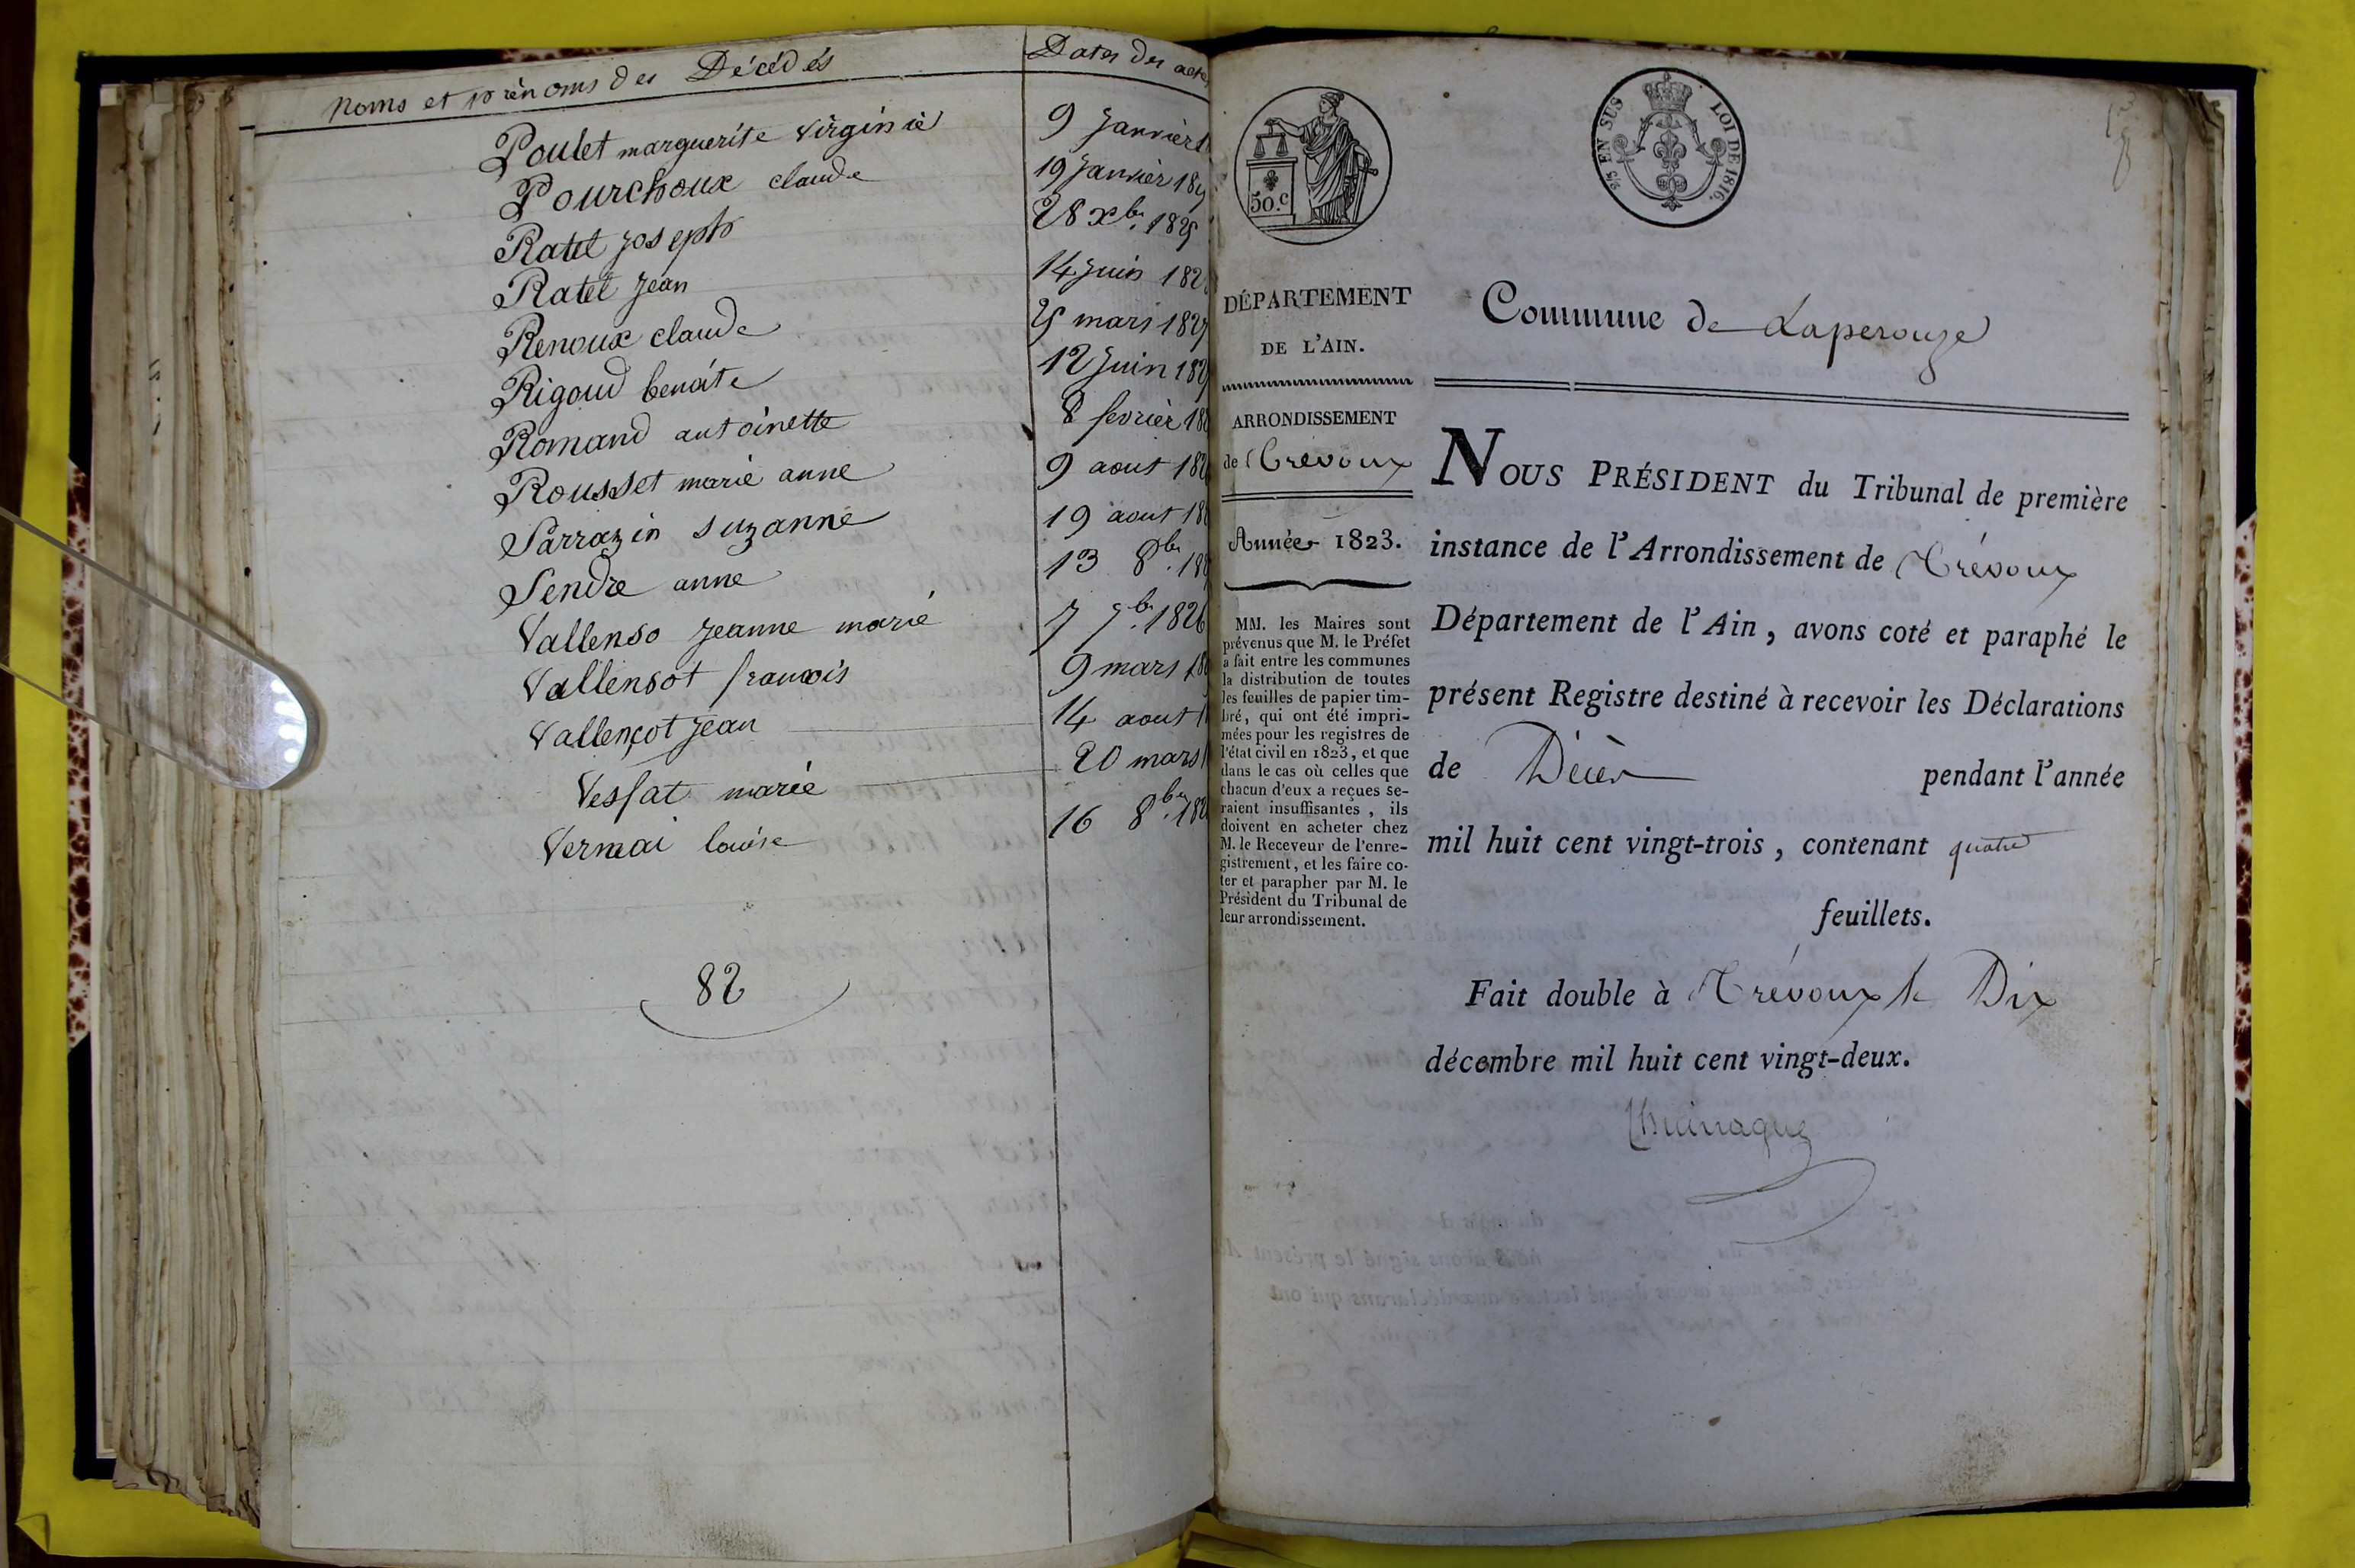 Noms et prénoms des Décédés
Dates des actes
Poulet marguerite virginie
9 Janvier
Pourchoux claude
19 Janvier
Ratel joseph
28 xbr. 182
Ratel Jean
14 Juin 182
Renoux claude
mars 182
Rigoud benoite
12 Juin 18
Romand antoinette
8 fevrier 18
Rousset marie anne
9 aout 182
Sarrazin suzanne
19 aout 18
Sendre anne
13 8br. 18
Vallenso Jeanne marie
7 7br. 1826
Vallensot francois
9 mars 18
Vallençot Jean
14 aout 1
Vessat marie
20 mars 1
Vernai louise
16 8br. 182
82
50.c
2/5 EN SUS LOI DE 1816.
DÉPARTEMENT
DE L'AIN.
ARRONDISSEMENT
de Trévoux
Année 1823.
MM. les Maires sont
prévenus que M. le Préfet
a fait entre les communes
la distribution de toutes
les feuilles de papier tim-
bré, qui ont été impri-
mées pour les registres de
l'état civil en 1823, et que
dans le cas où celles que
chacun d'eux a reçues se-
raient insuffisantes, ils
doivent en acheter chez
M. le Receveur de l'enre-
gistrement, et les faire co-
ter et parapher par M. le
Président du Tribunal de
leur arrondissement.
Commune de Laperouze
NOUS PRÉSIDENT du Tribunal de première
instance de l'Arrondissement de Trévoux
Département de l'Ain, avons coté et paraphé le
présent Registre destiné à recevoir les Déclarations
de Décès pendant l'année
mil huit cent vingt-trois, contenant quatre
feuillets.
Fait double à Trévoux le Dix
décembre mil huit cent vingt-deux.